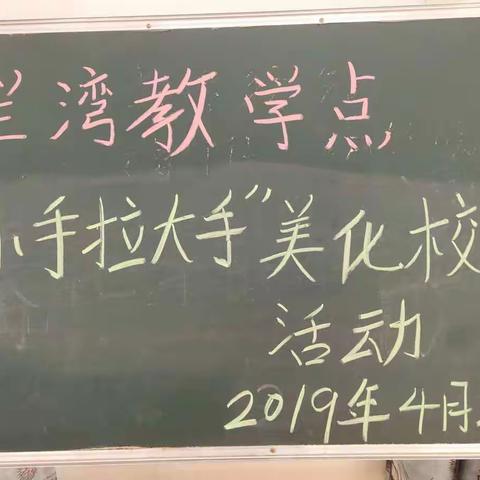 兰湾教学点
小手拉大手”美化校
活动
2019年4月